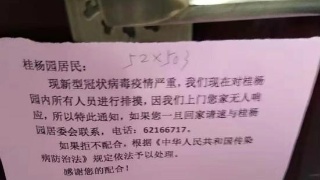 桂杨园居民：
52×503
现新型冠状病毒疫情严重，我们现在对桂杨
园内所有人员进行排摸，因我们上门您家无人响
应，所以特此通知，如果您一旦回家请速与桂杨
园居委会联系，电话：62166717。
如果拒不配合，根据《中华人民共和国传染
病防治法》规定依法予以处理。
感谢您的配合！